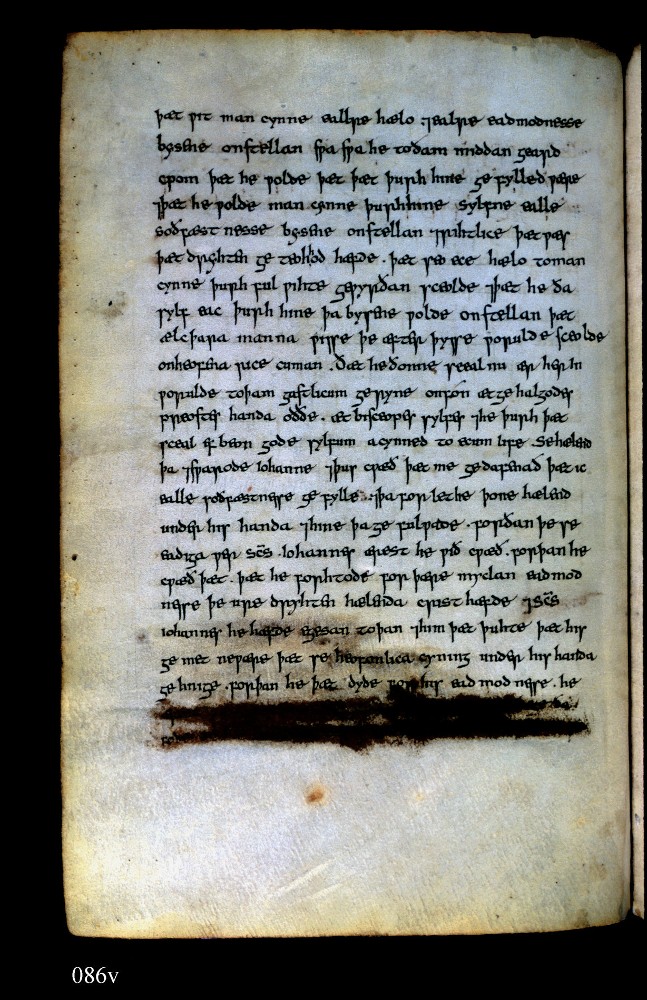 þæt ƿit man cynne ealƿe hælo ⁊ealƿe eadmodnesse
bysene onstellan sƿa sƿa he todam middan geard
cƿom þæt he ƿolde þæt þæt þurh hine gefylled ƿære
⁊þæt he ƿolde man cynne þurh hine sylfne ealle
soðfæst nesse bysene onstellan ⁊rihtlice þæt ƿæs
þæt dryhten ge teohod hæfde . þæt seo ece hælo toman
cynne þurh ful ƿihte geƿyrðan sceolde ⁊þæt he ða
sylf eac þurh hine þa bysene ƿolde onstellan þæt
ælc þara manna þisse þe æfter þysse ƿorulde sceolde
onheofena rice cuman . ðæt he ðonne sceal nu ær her In
ƿorulde toþam gastlicum geryne onfon æt ge halgodes
preostes handa oððe . æt bisceopes sylfes ⁊he þurh þæt
sceal eft beon gode sylfum acynned to ecum life . Se hælend
þa ⁊sƿarode Iohanne ⁊þus cƿæð þæt me gedafenað þæt ic
ealle soðfæstnesse ge fylle .:⁊þa forlethe þone hælend
under his handa ⁊hine þa ge fulƿade . forðan þe se
eadiga ƿer scs . Iohannes ærest he ƿið cƿæð . forþan he
cƿæð þæt . þæt he forhtode for þære myclan eadmod
nesse þe ure dryhten hælenda crist hæfde ⁊scs
Iohannes he hæfde egesan toþan ⁊him þæt þuhte þæt his
ge met neƿære þæt se heofonlica cyning under his handa
ge hnige . forþan he þæt dyde for his ead mod nesse . he
086v